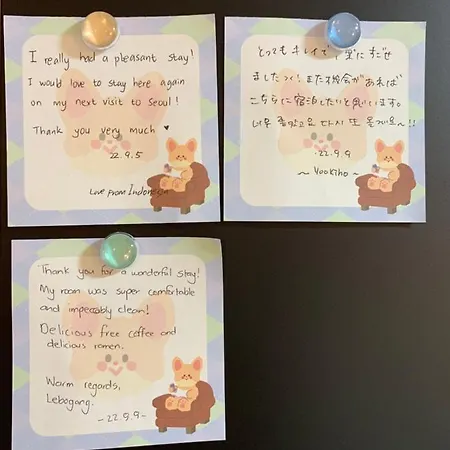 I really had a pleasant stay!
I would love to stay here again
on my next visit to Seoul!
Thank you very much ♥
22.9.5
Love from Indonesia
とってもキレイで 快にすごせ
ましたっ！また機会があれば
こちらに宿泊したいと思います。
너무 좋았고요 다시 또 올게요~!!
22.9.9
~ Yuukiho ~
Thank you for a wonderful stay!
My room was super comfortable
and impeccably clean!
Delicious free coffee and
delicious ramen.
Warm regards,
Lebogang.
-22.9.9-